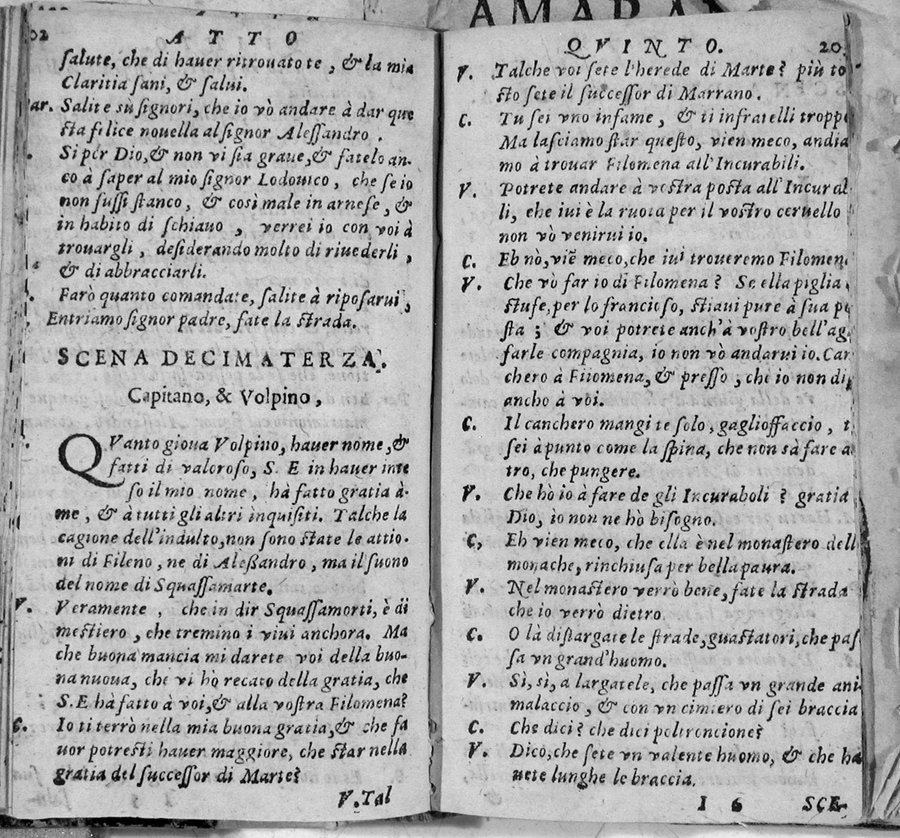 AMARAN
02 ATTO
salute, che di hauer ritrouato te, & la mia
Claritia sani, & salui.
ar. Salite sù signori, che io vò andare à dar que
sta filice nouella al signor Alessandro.
Si per Dio, & non vi sia graue, & fatelo an-
co à saper al mio signor Lodouico, che se io
non fussi stanco, & così male in arnese, &
in habito di schiauo, verrei io con voi à
trouargli, desiderando molto di riuederli,
& di abbracciarli.
Farò quanto comandate, salite à riposarui,
Entriamo signor padre, fate la strada.
SCENA DECIMATERZA.
Capitano, & Volpino,
QVanto gioua Volpino, hauer nome, &
fatti di valoroso, S. E in hauer inte
so il mio nome, hà fatto gratia à
me, & à tutti gli altri inquisiti. Talche la
cagione dell'indulto, non sono state le attio-
ni di Fileno, ne di Aleßandro, ma il suono
del nome di Squassamarte.
V. Veramente, che in dir Squassamorti, è di
mestiero, che tremino i viui anchora. Ma
che buona mancia mi darete voi della buo-
na nuoua, che vi ho recato della gratia, che
S. E hà fatto à voi, & alla vostra Filomena?
C. Io ti terrò nella mia buona gratia, & che fa
uor potresti hauer maggiore, che star nella
gratia del successor di Marte?
V. Tal
QVINTO. 20
V. Talche voi sete l'herede di Marte? più to
sto sete il successor di Marrano.
C. Tu sei vno infame, & ti infratelli tropp
Ma lasciamo star questo, vien meco, andia
mo à trouar Filomena all'Incurabili.
V. Potrete andare à vostra posta all'Incurab
li, che iui è la ruota per il vostro ceruello
non vò venirui io.
C. Eh nò, viē meco, che iui troueremo Filomen
V. Che vò far io di Filomena? Se ella piglia
stufe, per lo francioso, stiaui pure à sua po
sta; & voi potrete anch'à vostro bell'ag
farle compagnia, io non vò andarui io. Can
chero à Filomena, & presso, che io non di
ancho à voi.
C. Il canchero mangi te solo, gaglioffaccio, t
sei à punto come la spina, che non sà fare a
tro, che pungere.
V. Che hò io à fare de gli Incuraboli? gratia
Dio, io non ne hò bisogno.
C, Eh vien meco, che ella è nel monastero dell
monache, rinchiusa per bella paura.
V. Nel monastero verrò bene, fate la strada
che io verrò dietro
C. O là dislargate le strade, guastatori, che pas
sa vn grand'huomo.
V. Sì, sì, a largatele, che passa vn grande ani
malaccio, & con vn cimiero di sei braccia
C. Che dici? che dici poltroncione?
V. Dico, che sete vn valente huomo, & che ha
uete lunghe le braccia.
I 6 SCE-